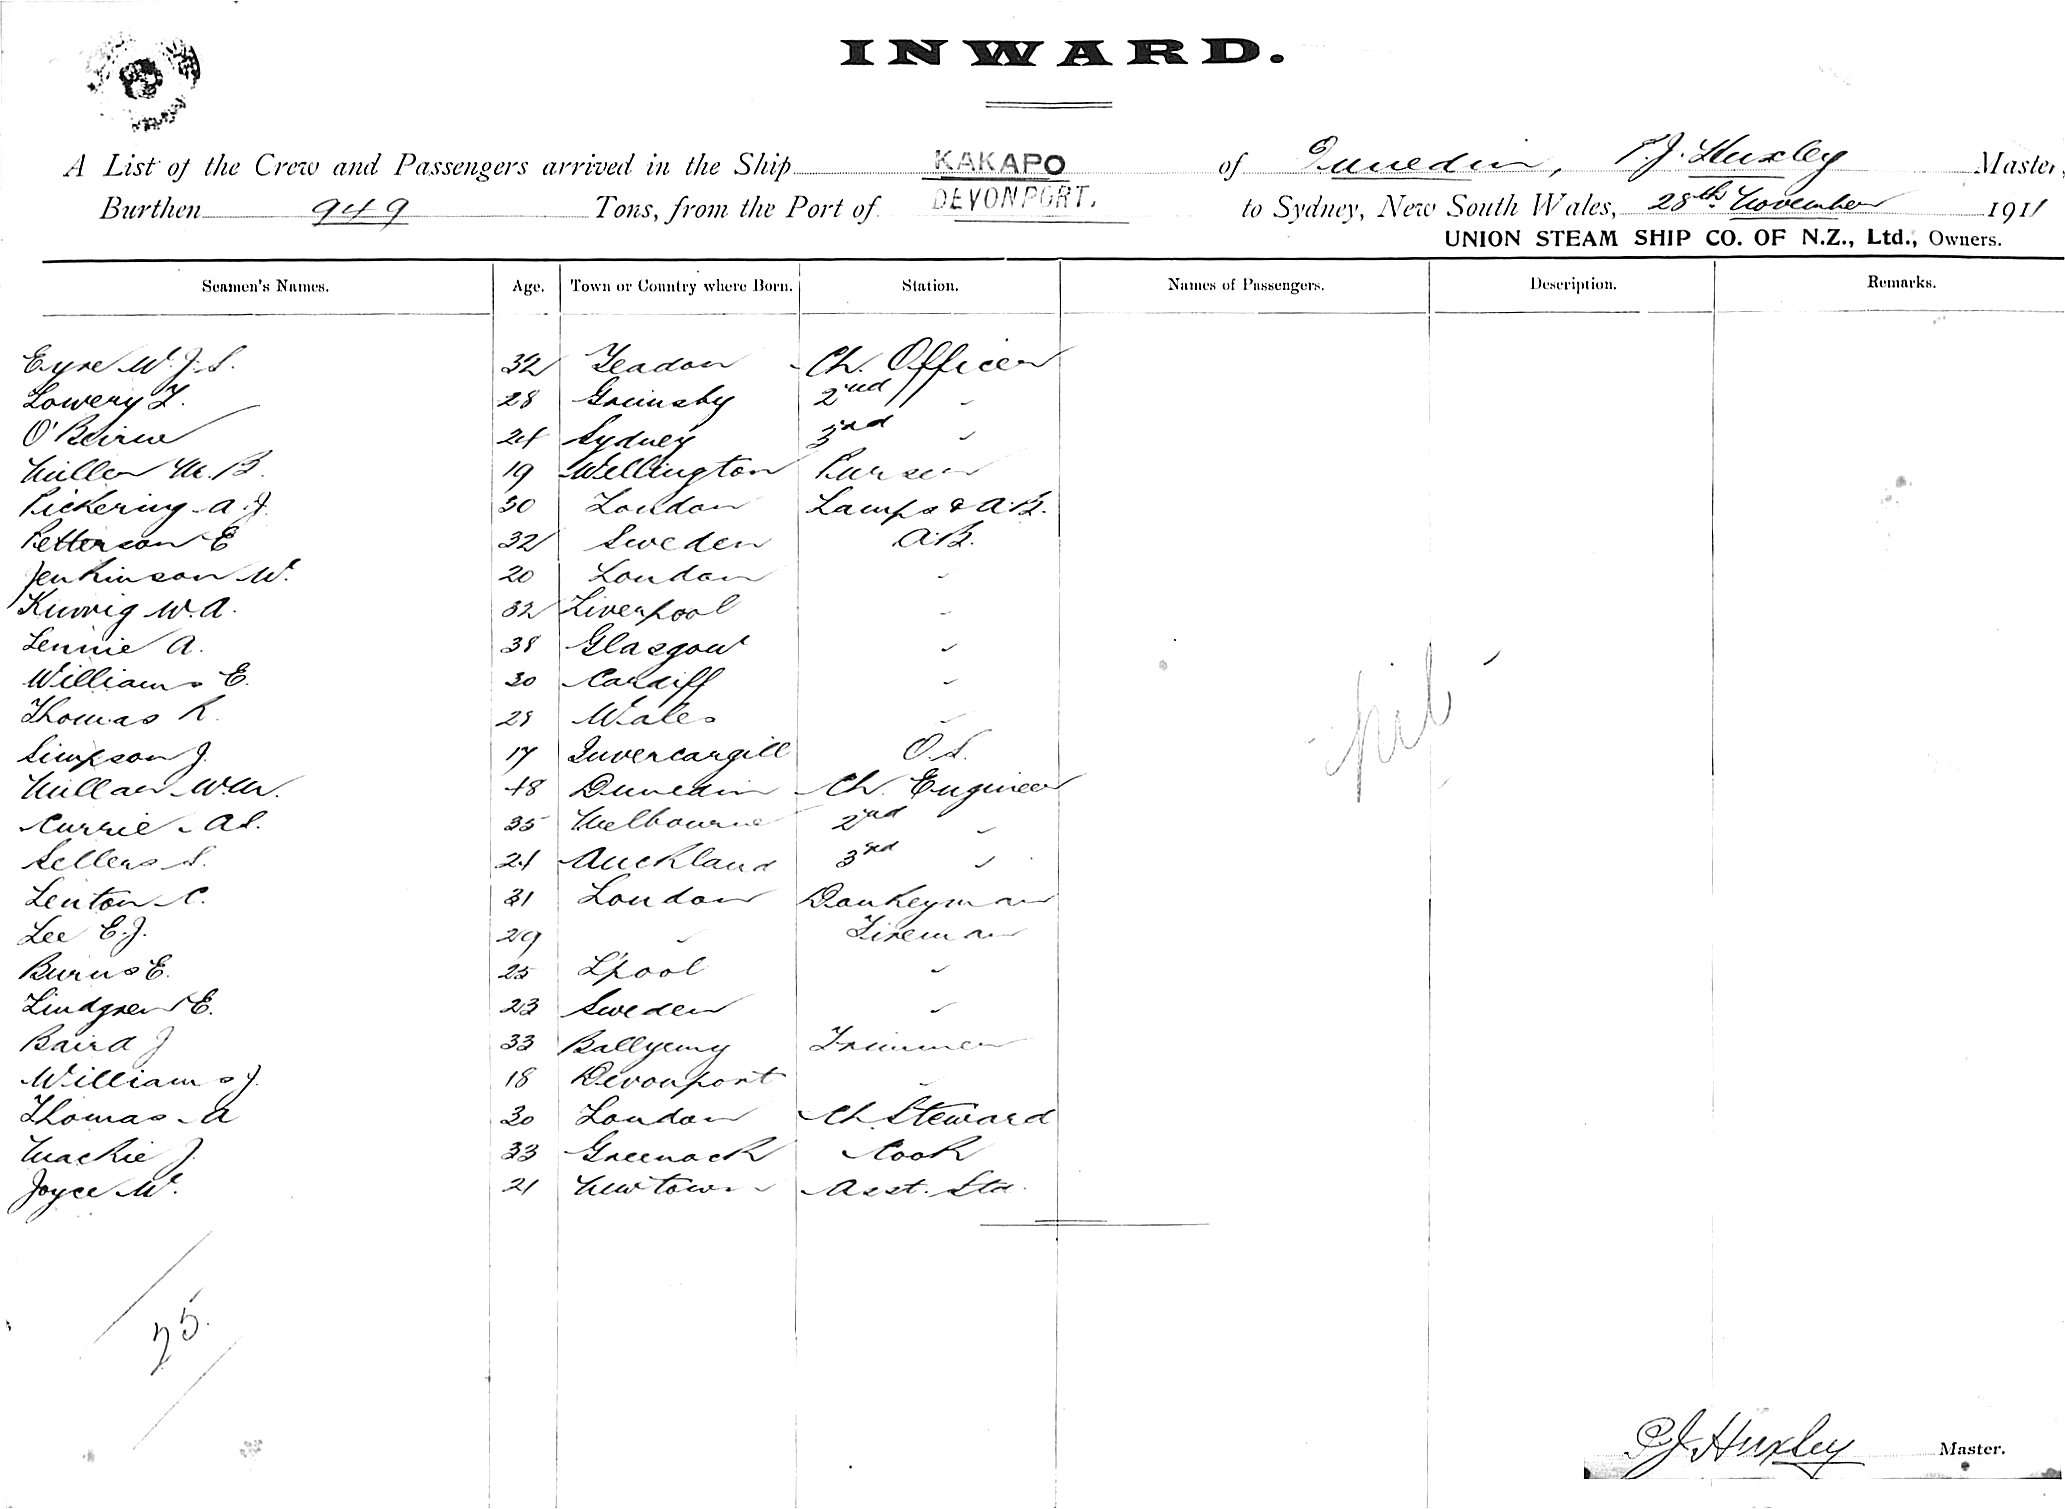 INWARD.
A List of the Crew and Passengers arrived in the Ship KAKAPO of Dunedin, P.J. Huxley Master,
Burthen 949 Tons, from the Port of DEVONPORT. to Sydney, New South Wales, 28th November 1911
UNION STEAM SHIP CO. OF N.Z., Ltd., Owners.
Seamen's Names. Age. Town or Country where Born. Station. Names of Passengers. Description. Remarks.
Eyre W.J.S. 32 Yeadon Ch. Officer
Lowery F. 28 Grimsby 2nd "
O'Beirne 24 Sydney 3rd "
Miller M.B. 19 Wellington Purser
Pickering A.J. 30 London Lamps & A.B.
Petterson E 32 Sweden A.B.
Jenkinson W. 20 London "
W.A. 32 Liverpool "
Lennie A. 38 Glasgow "
Williams E. 30 Cardiff "
Thomas R. 28 Wales "
Simpson J. 17 Invercargill O.S.
Millar W.M. 48 Dunedin Ch. Engineer
Currie A.S. 35 Melbourne 2nd "
Sellers S. 24 Auckland 3rd "
Lenton C. 31 London Donkeyman
Lee E.J. 29 " Fireman
Burns E. 25 L'pool "
Lindgren E. 23 Sweden "
Baird J 33 Trimmer
Williams J. 18 Devonport "
Thomas A 30 London Ch. Steward
Mackie J. 33 Greenock Cook
Joyce W. 21 Newtown Asst. Std.
- nil -
25.
P.J. Huxley Master.